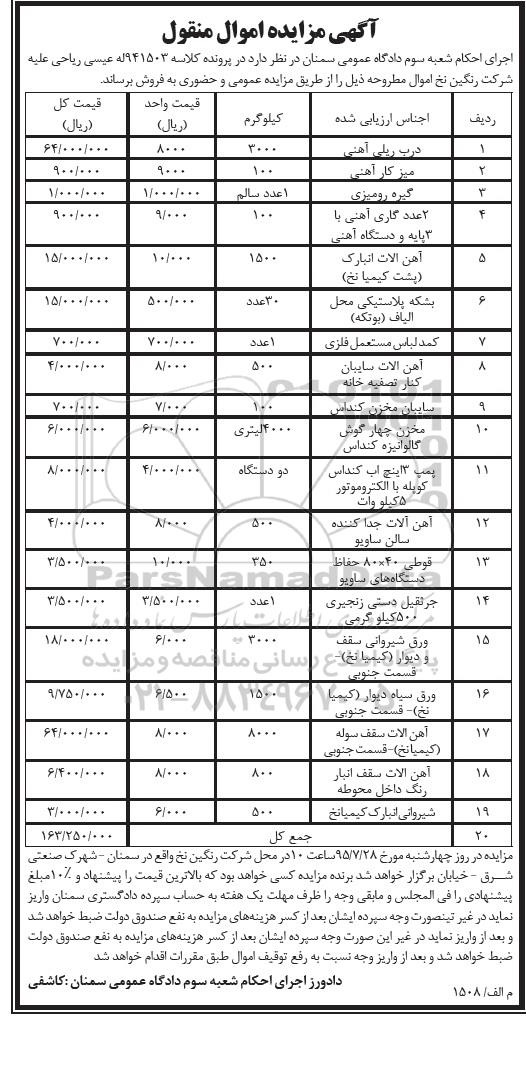 آگهی مزایده اموال منقول
اجرای احکام شعبه سوم دادگاه عمومی سمنان در نظر دارد در پرونده کلاسه ۹۴۱۵۰۳له عیسی ریاحی علیه
شرکت رنگین نخ اموال مطروحه ذیل را از طریق مزایده عمومی و حضوری به فروش برساند.
ردیف اجناس ارزیابی شده کیلوگرم قیمت واحد (ریال) قیمت کل (ریال)
۱ درب ریلی آهنی ۳۰۰۰ ۸۰۰۰ ۶۴/۰۰۰/۰۰۰
۲ میز کار آهنی ۱۰۰ ۹۰۰۰ ۹۰۰/۰۰۰
۳ گیره رومیزی ۱عدد سالم ۱/۰۰۰/۰۰۰ ۱/۰۰۰/۰۰۰
۴ ۲عدد گاری آهنی با ۳پایه و دستگاه آهنی ۱۰۰ ۹/۰۰۰ ۹۰۰/۰۰۰
۵ آهن الات انبارک (پشت کیمیا نخ) ۱۵۰۰ ۱۰/۰۰۰ ۱۵/۰۰۰/۰۰۰
۶ بشکه پلاستیکی محل الیاف (بوتکه) ۳۰عدد ۵۰۰/۰۰۰ ۱۵/۰۰۰/۰۰۰
۷ کمدلباس مستعمل فلزی ۱عدد ۷۰۰/۰۰۰ ۷۰۰/۰۰۰
۸ آهن الات سایبان کنار تصفیه خانه ۵۰۰ ۸/۰۰۰ ۴/۰۰۰/۰۰۰
۹ سایبان مخزن کنداس ۱۰۰ ۷/۰۰۰ ۷۰۰/۰۰۰
۱۰ مخزن چهار گوش گالوانیزه کنداس ۴۰۰۰لیتری ۶/۰۰۰/۰۰۰ ۶/۰۰۰/۰۰۰
۱۱ پمپ ۳اینچ اب کنداس کوپله با الکتروموتور ۵کیلو وات دو دستگاه ۴/۰۰۰/۰۰۰ ۸/۰۰۰/۰۰۰
۱۲ آهن آلات جدا کننده سالن ساویو ۵۰۰ ۸/۰۰۰ ۴/۰۰۰/۰۰۰
۱۳ قوطی ۴۰×۸۰ حفاظ دستگاه‌های ساویو ۳۵۰ ۱۰/۰۰۰ ۳/۵۰۰/۰۰۰
۱۴ جرثقیل دستی زنجیری ۵۰۰کیلو گرمی ۱عدد ۳/۵۰۰/۰۰۰ ۳/۵۰۰/۰۰۰
۱۵ ورق شیروانی سقف و دیوار (کیمیا نخ)- قسمت جنوبی ۳۰۰۰ ۶/۰۰۰ ۱۸/۰۰۰/۰۰۰
۱۶ ورق سیاه دیوار (کیمیا نخ)- قسمت جنوبی ۱۵۰۰ ۶/۵۰۰ ۹/۷۵۰/۰۰۰
۱۷ آهن الات سقف سوله (کیمیانخ)-قسمت جنوبی ۸۰۰۰ ۸/۰۰۰ ۶۴/۰۰۰/۰۰۰
۱۸ آهن الات سقف انبار رنگ داخل محوطه ۸۰۰ ۸/۰۰۰ ۶/۴۰۰/۰۰۰
۱۹ شیروانی انبارک کیمیانخ ۵۰۰ ۶/۰۰۰ ۳/۰۰۰/۰۰۰
۲۰ جمع کل ۱۶۳/۲۵۰/۰۰۰
مزایده در روز چهارشنبه مورخ ۹۵/۷/۲۸ساعت ۱۰در محل شرکت رنگین نخ واقع در سمنان - شهرک صنعتی
شرق - خیابان برگزار خواهد شد برنده مزایده کسی خواهد بود که بالاترین قیمت را پیشنهاد و ۱۰٪مبلغ
پیشنهادی را فی المجلس و مابقی وجه را ظرف مهلت یک هفته به حساب سپرده دادگستری سمنان واریز
نماید در غیر اینصورت وجه سپرده ایشان بعد از کسر هزینه‌های مزایده به نفع صندوق دولت ضبط خواهد شد
و بعد از واریز نماید در غیر این صورت وجه سپرده ایشان بعد از کسر هزینه‌های مزایده به نفع صندوق دولت
ضبط خواهد شد و بعد از واریز وجه نسبت به رفع توقیف اموال طبق مقررات اقدام خواهد شد
دادورز اجرای احکام شعبه سوم دادگاه عمومی سمنان :کاشفی
م الف/ ۱۵۰۸
ParsNamadData